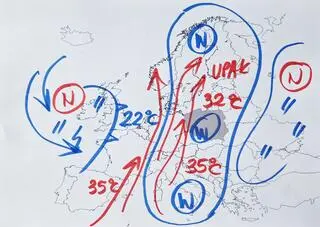 W
UPAŁ
N
N
32°C
22°C
W
35°C
35°C
W